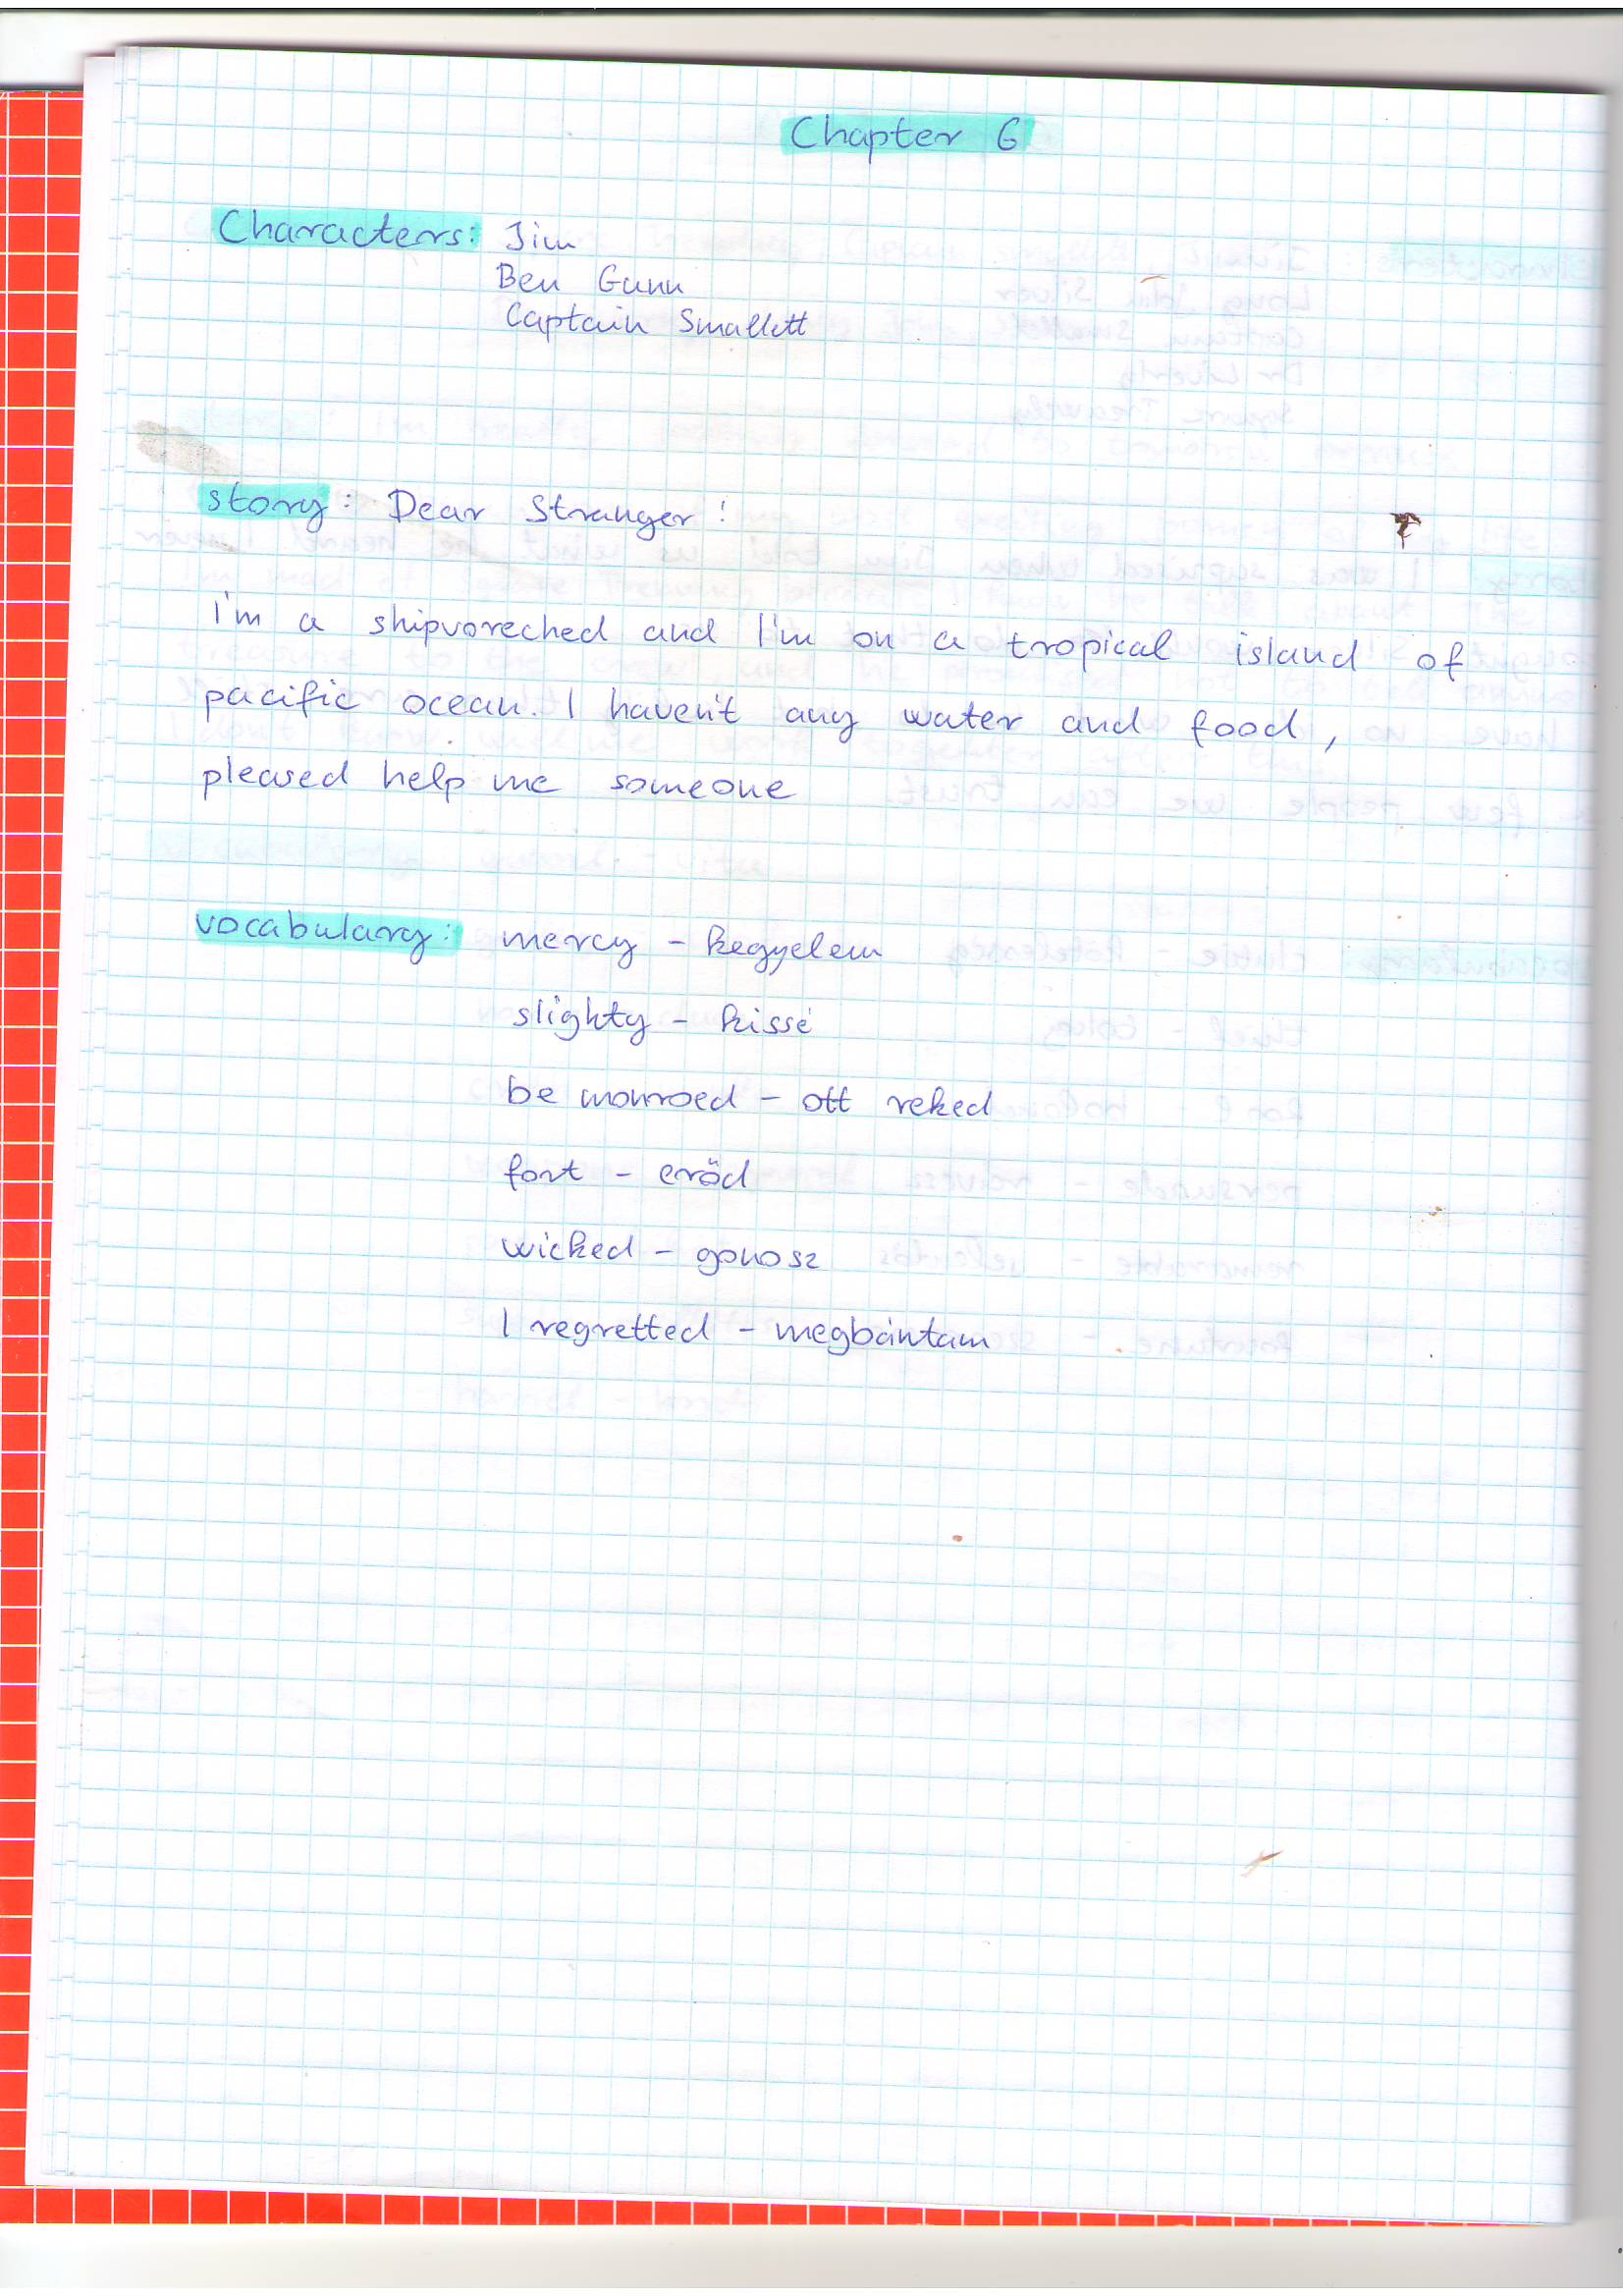 Chapter 6
Characters: Jim
Ben Gunn
Captain Smallett
story: Dear Stranger!
I'm a shipvoreched and I'm on a tropical island of
pacific ocean. I haven't any water and food,
pleased help me someone
vocabulary: mercy - kegyelem
slighty - kissé
be monroed - ott reked
fort - eröd
wicked - gonosz
I regretted - megbántam